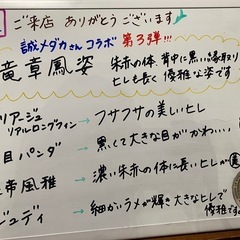 ご来店 ありがとうございます
誠メダカさんコラボ 第3弾!!!
竜章鳳姿
朱赤の体、背中に黒い縁取り
ヒレも長く優雅な姿です
リアージュ
リアルロングフィン → フサフサの美しいヒレ
目パンダ → 黒くて大きな目がかわいい
帝風雅 → 濃い朱赤の体に長いヒレが
ジュディ → 細かいラメが輝き大きなヒレで
優雅です